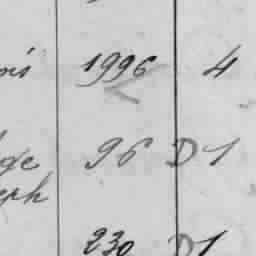 ois 1996 4
ge 96 D 1
eph
230 D1